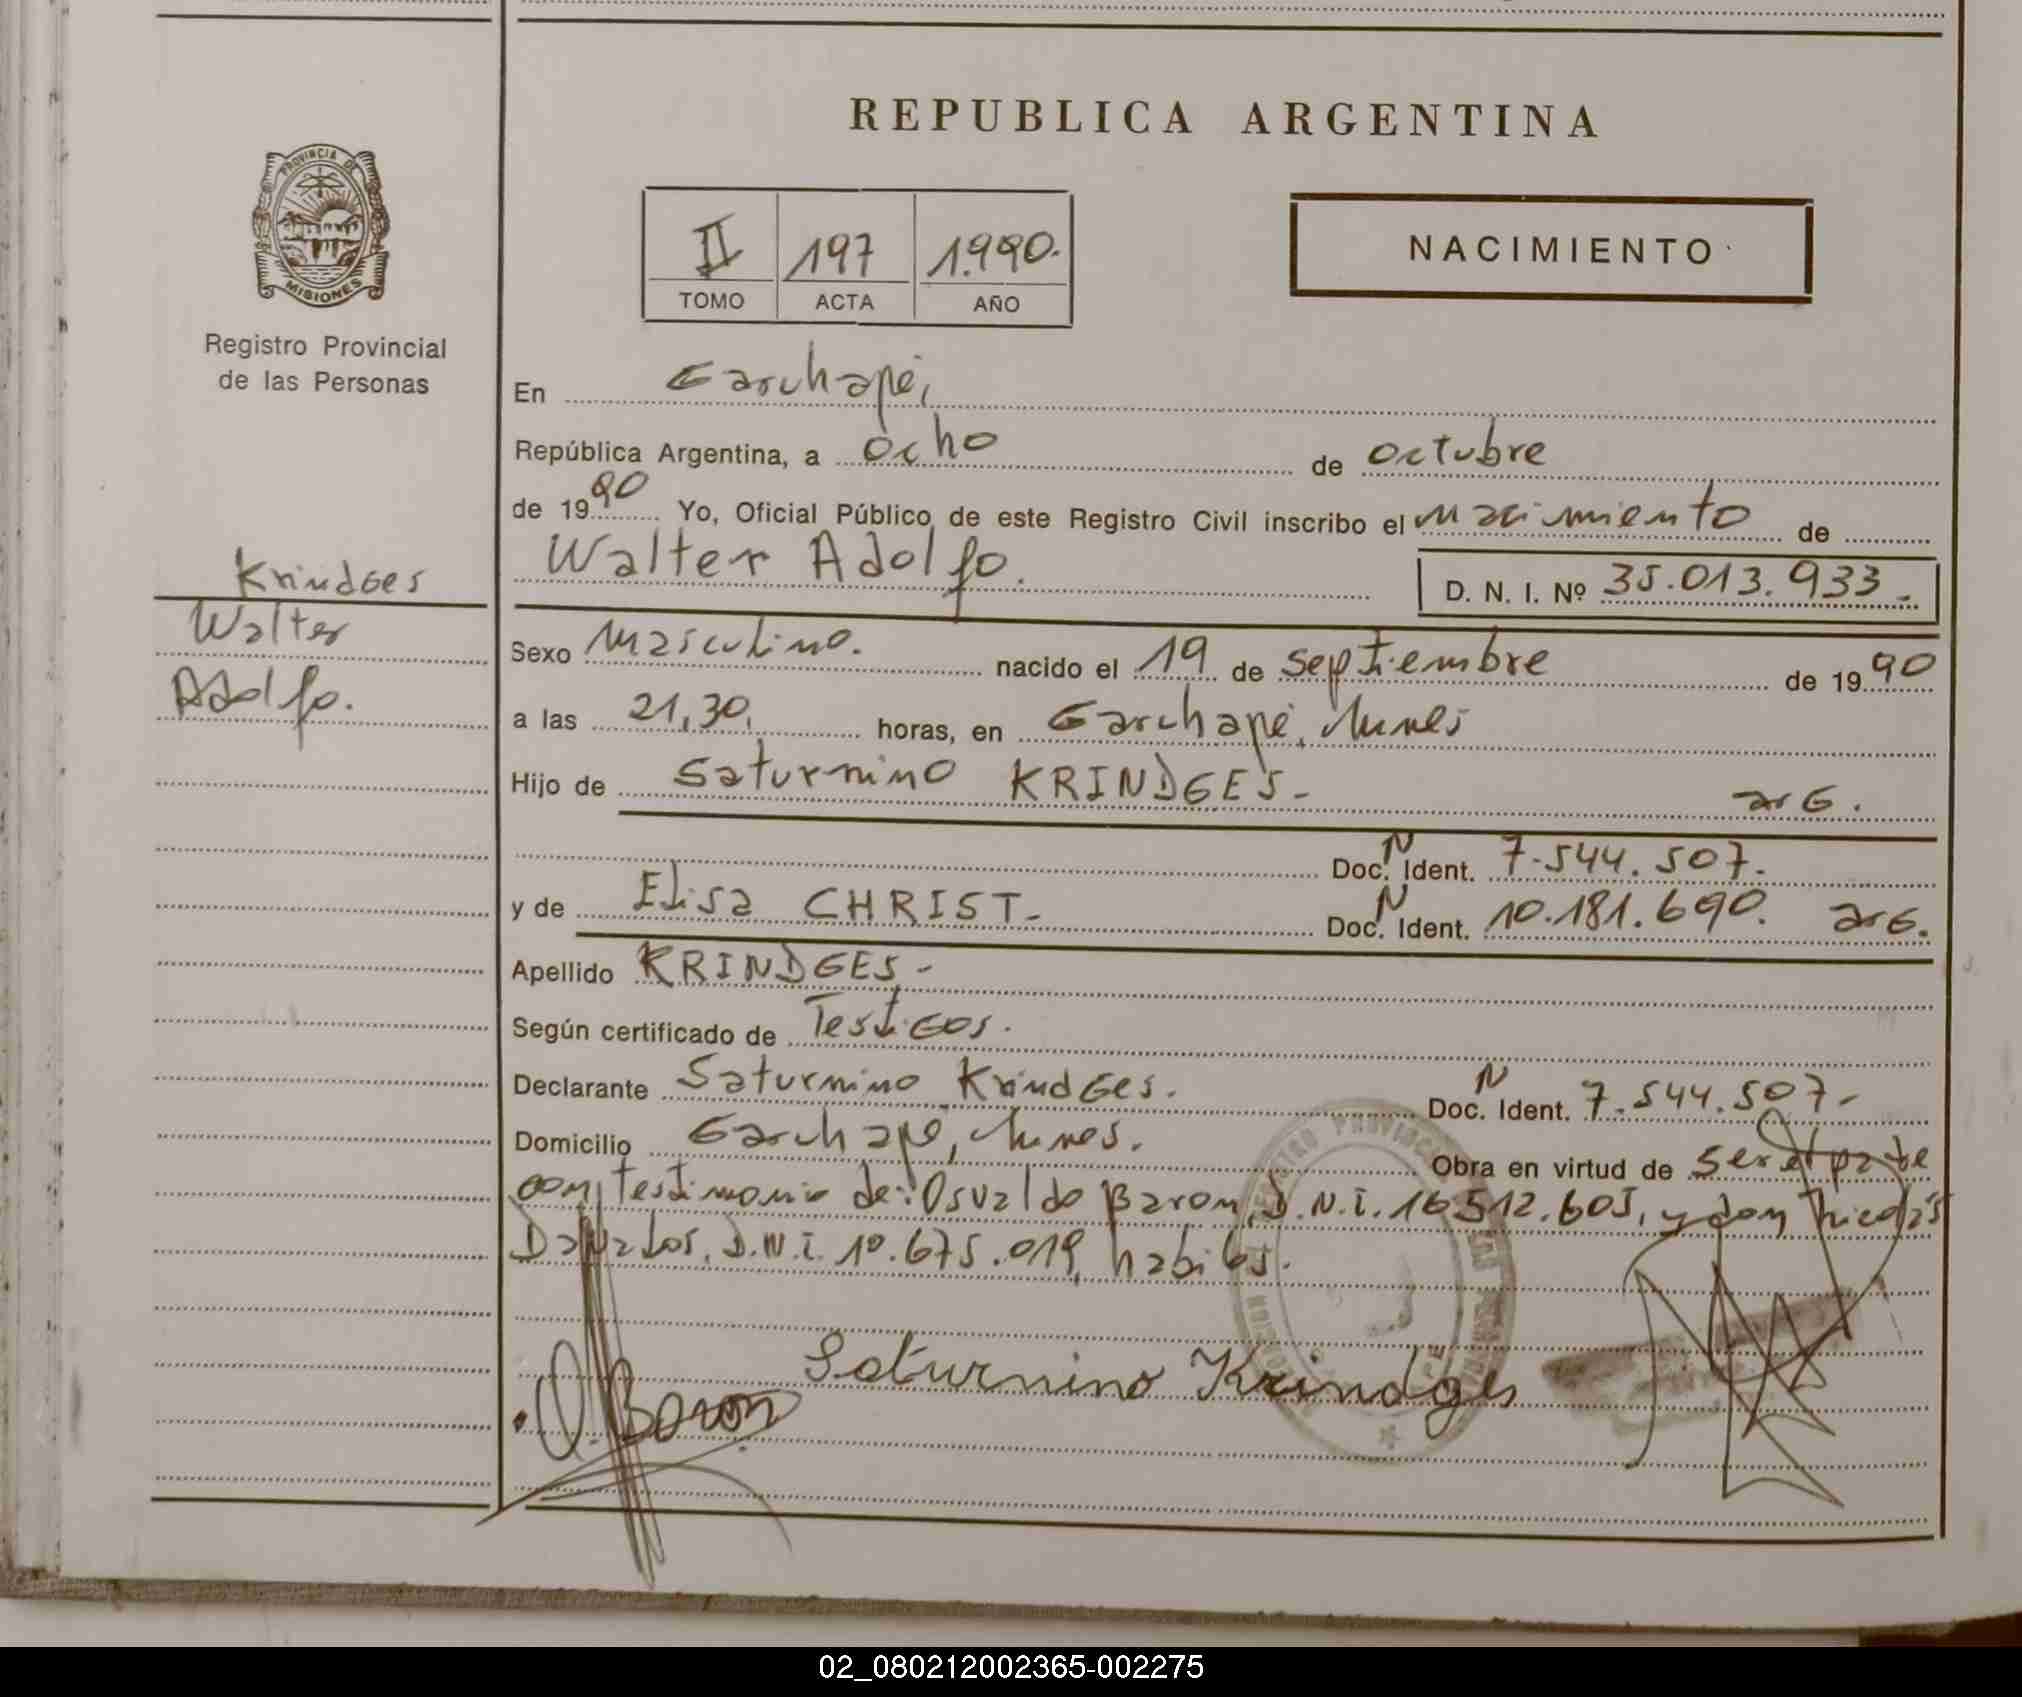 REPUBLICA ARGENTINA
PROVINCIA DE
MISIONES
Registro Provincial
de las Personas
II 197 1.990.
TOMO ACTA AÑO
NACIMIENTO
En Garuhapé,
República Argentina, a ocho de octubre
de 1990 Yo, Oficial Público de este Registro Civil inscribo el nacimiento de
Walter Adolfo.
D. N. I. Nº 35.013.933.-
Krindges
Walter
Adolfo.
Sexo Masculino. nacido el 19 de septiembre de 1990
a las 21,30. horas, en Garuhapé, Mnes
Hijo de Saturnino KRINDGES- arG.
Doc. N Ident. 7.544.507.
y de Elisa CHRIST- Doc. N Ident. 10.181.690. arG.
Apellido KRINDGES-
Según certificado de TestiGos.
Declarante Saturnino KrindGes. Doc. N Ident. 7.544.507-
Domicilio Garuhapé, Mnes. Obra en virtud de ser el padre
con testimonio de: Osvaldo Baron, D.N.I. 16.512.605, y don
D.N.I. 10.675.019, habiles.
O. Baron
Saturnino Krindges
REGISTRO PROVINCIAL
02_080212002365-002275